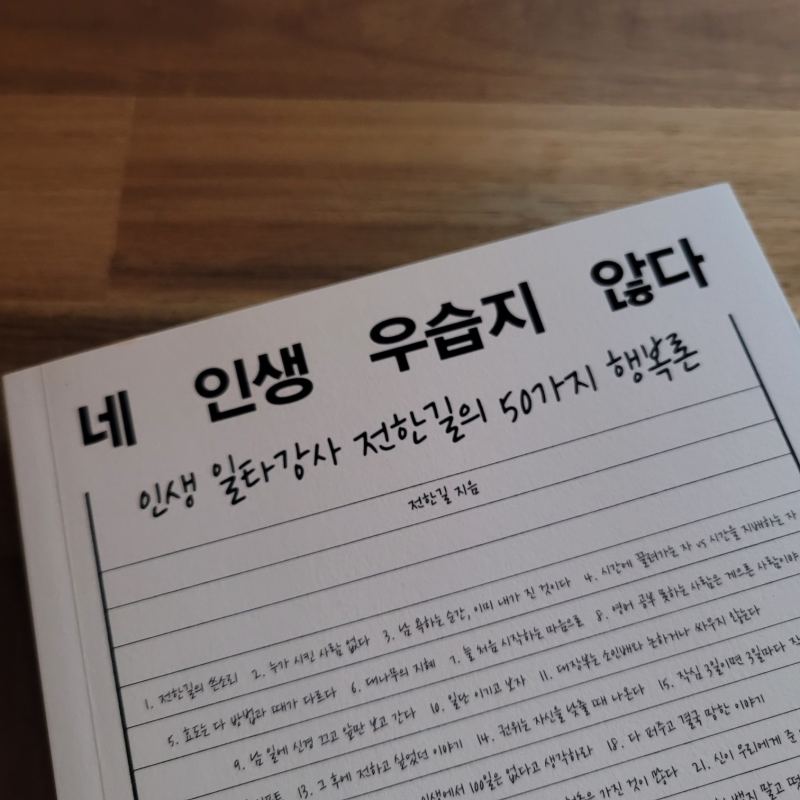 네 인생 우습지 않다
인생 일타강사 전한길의 50가지 행복론
전한길 지음
1. 전한길의 쓴소리 2. 누가 시킨 사람 없다 3. 남 욕하는 순간, 이미 내가 진 것이다 4. 시간에 끌려가는 자 vs 시간을 지배하는 자
5. 효도는 다 방법과 때가 다르다 6. 대나무의 지혜 7. 늘 처음 시작하는 마음으로 8. 영어 공부 못하는 사람은 게으른 사람이야
9. 남 일에 신경 끄고 앞만 보고 간다 10. 일단 이기고 보자 11. 대장부는 소인배와 논하거나 싸우지 않는다
13. 그 후에 전하고 싶었던 이야기 14. 권위는 자신을 낮출 때 나온다 15. 작심 3일이면 3일마다
인생에서 100일은 없다고 생각하라 18. 다 퍼주고 결국 망한 이야기
가진 것이 많다 21. 신이 우리에게 준